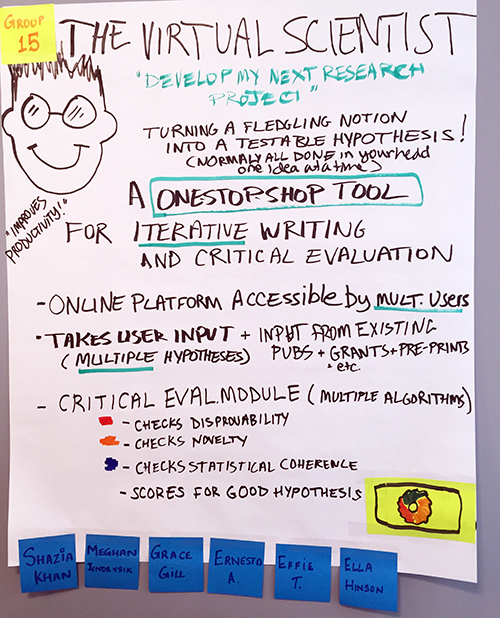 GROUP
15
THE VIRTUAL SCIENTIST
"DEVELOP MY NEXT RESEARCH
PROJECT"
TURNING A FLEDGLING NOTION
INTO A TESTABLE HYPOTHESIS!
(NORMALY ALL DONE in your head
one idea at a time)
A ONESTOP-SHOP TOOL
"IMPROVES
PRODUCTIVITY!"
FOR ITERATIVE WRITING
AND CRITICAL EVALUATION
- ONLINE PLATFORM ACCESSIBLE by MULT. USERS
- TAKES USER INPUT + INPUT FROM EXISTING
(MULTIPLE HYPOTHESES) PUBS + GRANTS + PRE-PRINTS
+ etc.
- CRITICAL EVAL. MODULE (MULTIPLE ALGORITHMS)
- CHECKS DISPROVABILITY
- CHECKS NOVELTY
- CHECKS STATISTICAL COHERENCE
- SCORES FOR GOOD HYPOTHESIS
SHAZIA
KHAN
MEGHAN
GRACE
GILL
ERNESTO
A.
EFFIE
T.
ELLA
HINSON